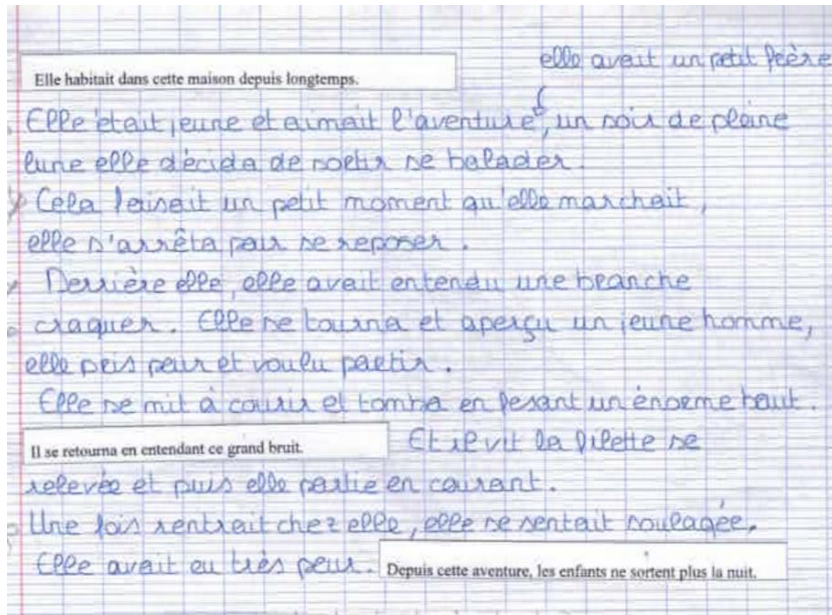 elle avait un petit frère
Elle habitait dans cette maison depuis longtemps.
Elle était jeune et aimait l'aventure, un soir de pleine
lune elle décida de sortir se balader.
Cela faisait un petit moment qu'elle marchait,
elle s'arrêta pour se reposer.
Derrière elle, elle avait entendu une branche
craquer. Elle se tourna et aperçu un jeune homme,
elle pris peur et voulu partir.
Elle se mit à courir et tomba en fesant un énorme bruit.
Il se retourna en entendant ce grand bruit. Et il vit la filette se
relevée et puis elle partie en courant.
Une fois rentrait chez elle, elle se sentait soulagée,
Elle avait eu très peur. Depuis cette aventure, les enfants ne sortent plus la nuit.